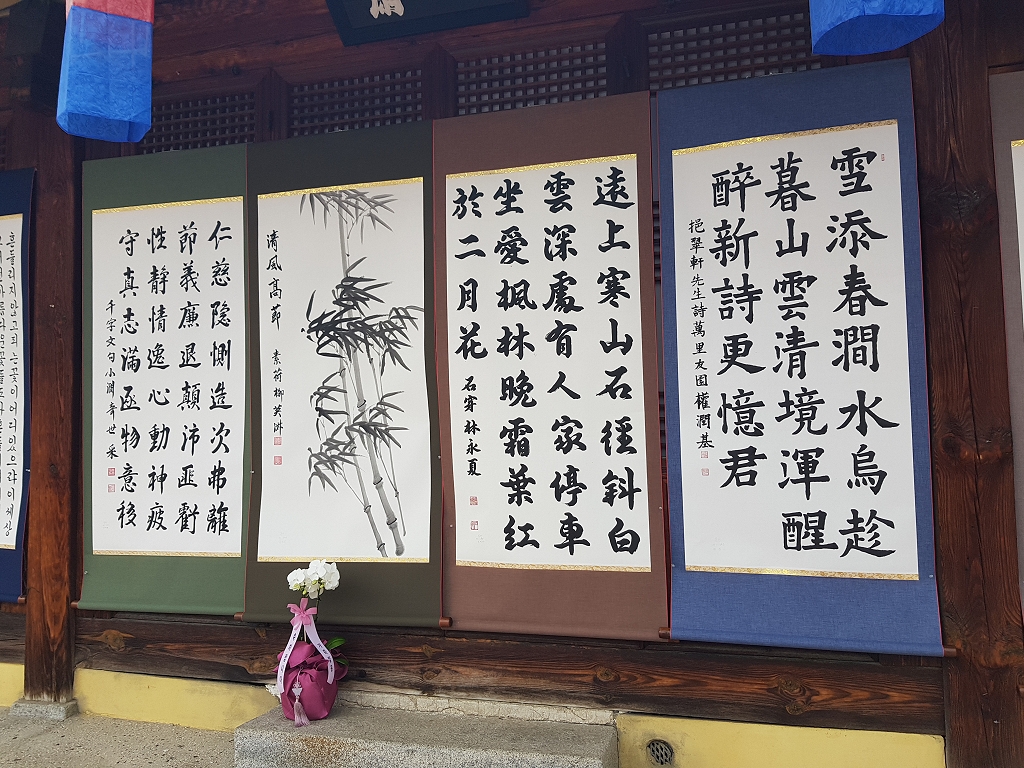 雪添春澗水烏趁
暮山雲清境渾醒
醉新詩更憶君
挹翠軒先生詩萬里友園權潤基
遠上寒山石徑斜白
雲深處有人家停車
坐愛楓林晚霜葉紅
於二月花
石穿林永夏
清風高節
素荷柳英
仁慈隱惻造次弗離
節義廉退顛沛匪虧
性靜情逸心動神疲
守真志滿逐物意移
千字文句小淵
흔들리지 않고 피는 꽃이 어디 있으랴 이 세상